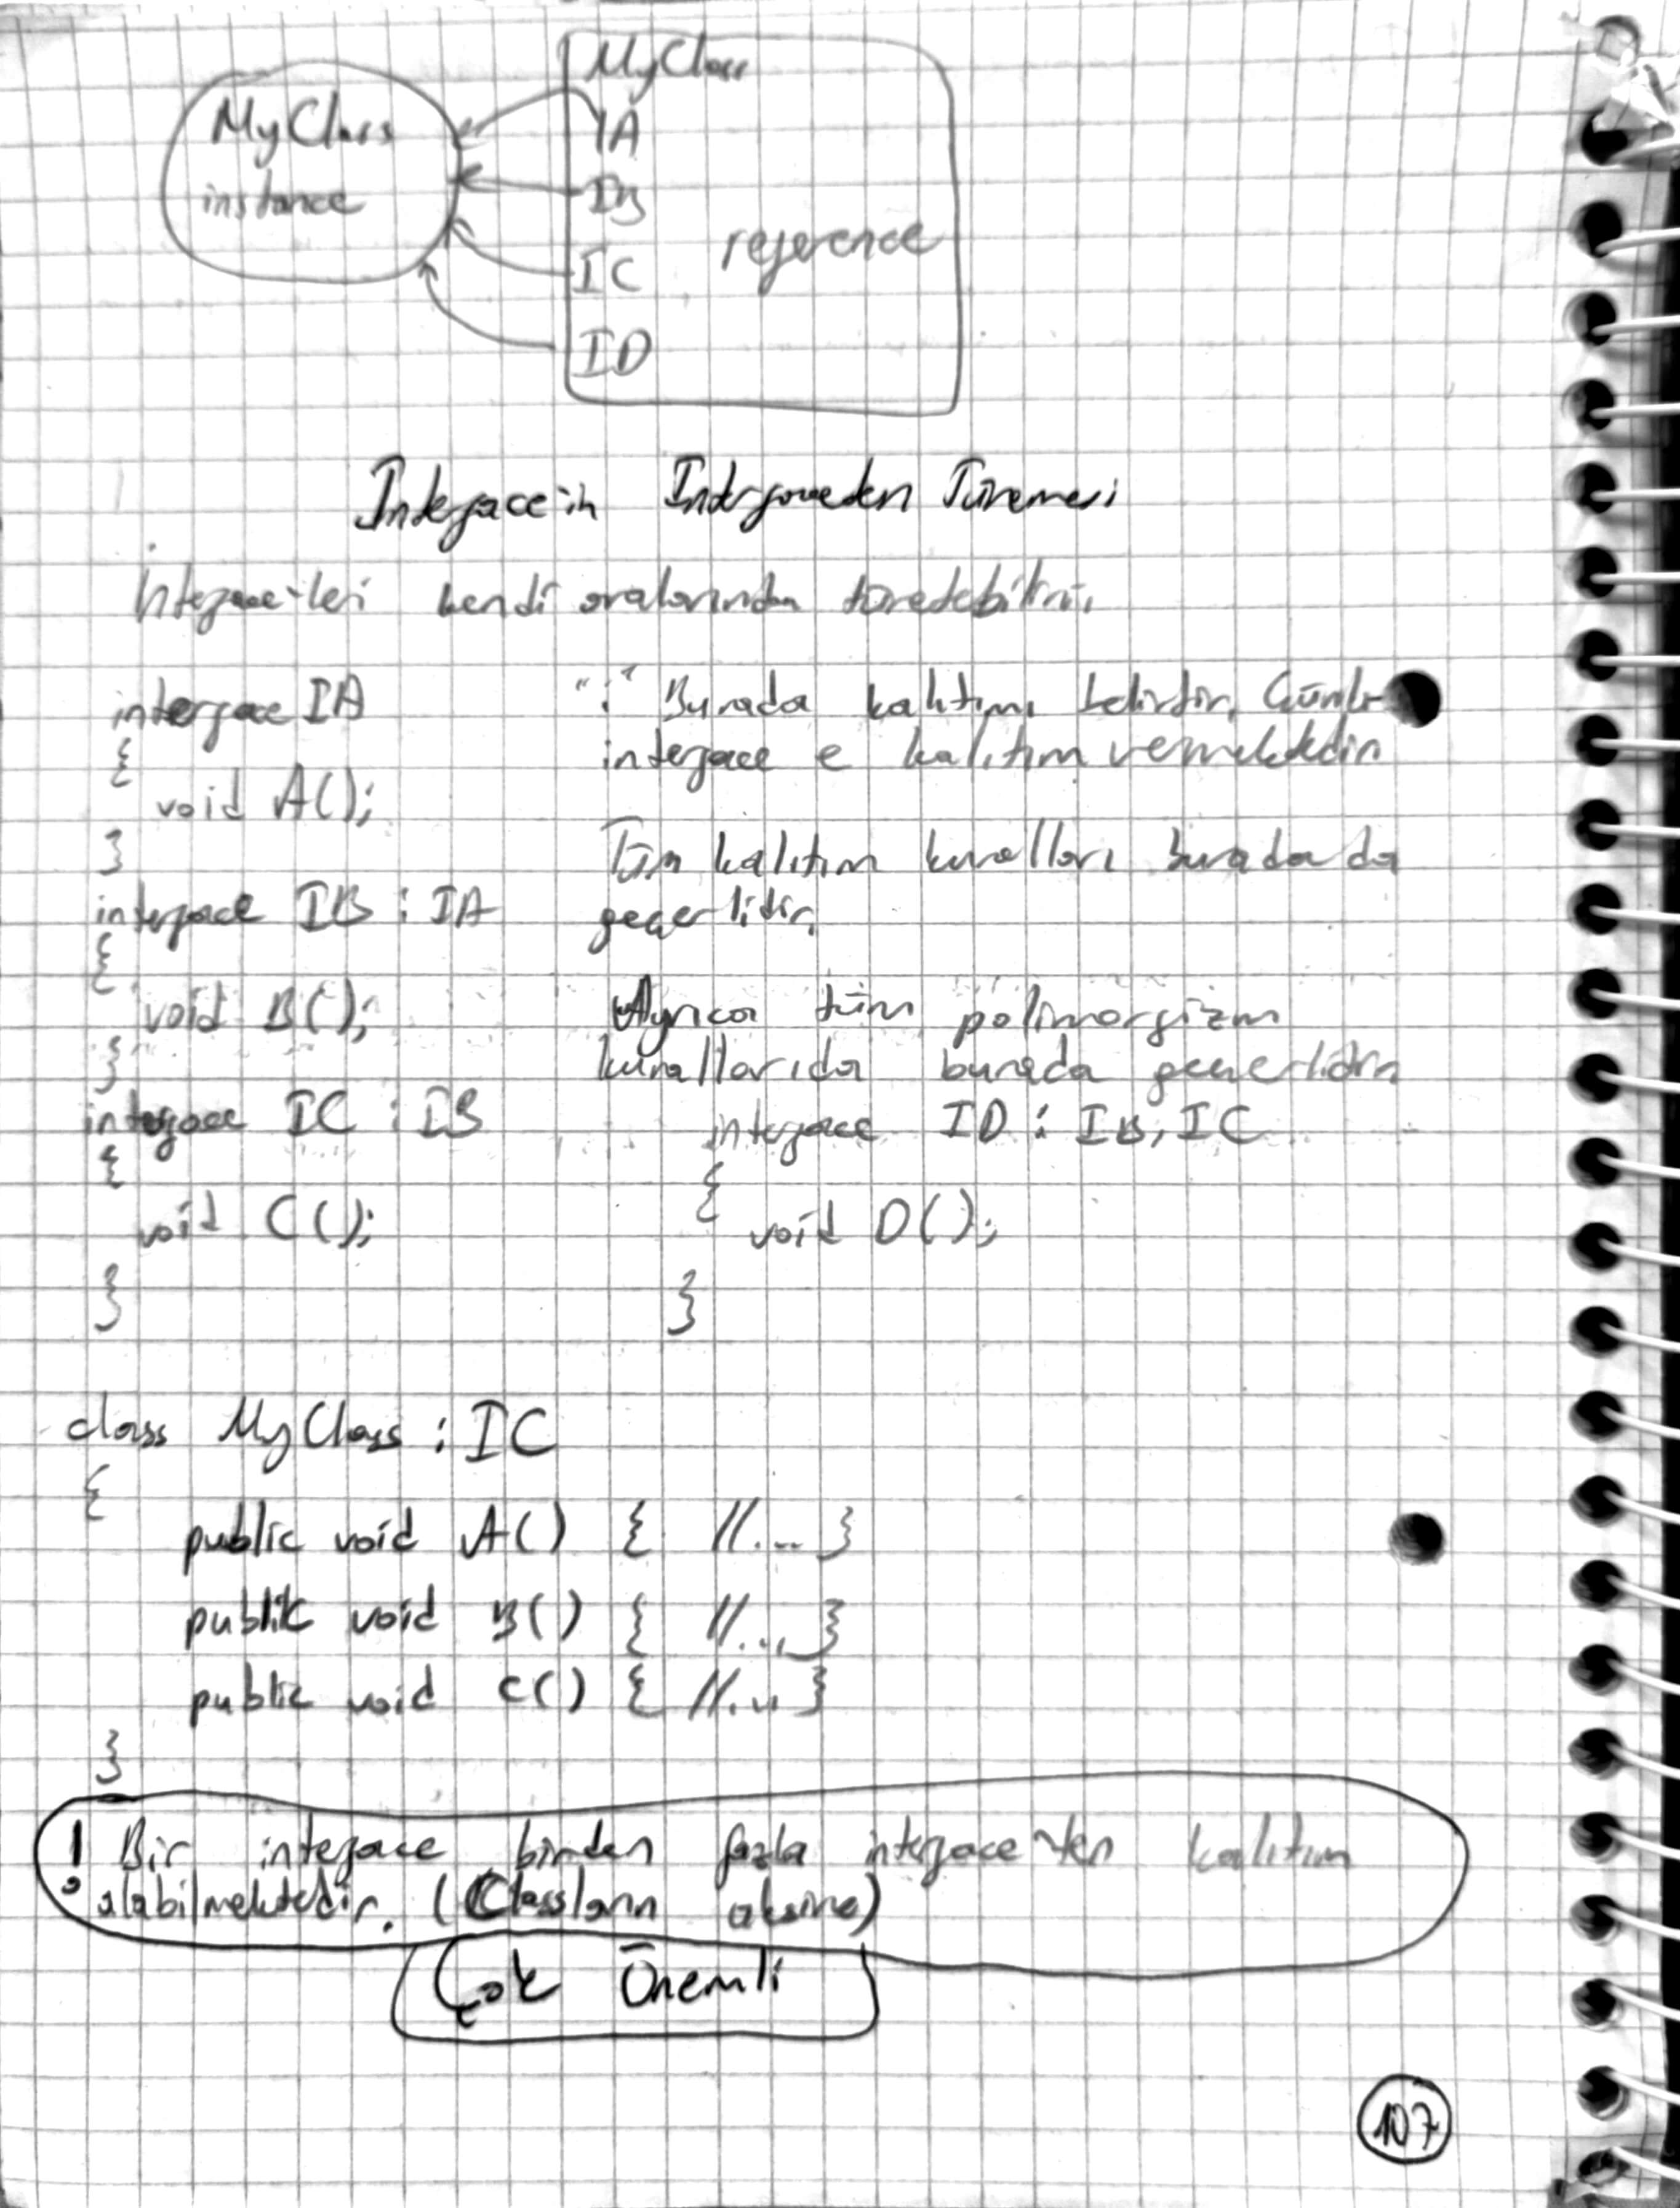 MyClass
instance
MyClass
IA
IB
IC
ID
reference
Interface'in Interfaceden Türemesi
Interface'leri kendi aralarında türetebiliriz.
interface IA
{
void A();
}
interface IB : IA
{
void B();
}
interface IC : IB
{
void C();
}
":" Burada kalıtımı belirtir. Çünkü
interface e kalıtım vermektedir
Tüm kalıtım kuralları burada da
geçerlidir.
Ayrıca tüm polimorfizm
kurallarıda burada geçerlidir
interface ID : IB, IC
{
void D();
}
class MyClass : IC
{
public void A() { //... }
public void B() { //... }
public void C() { //... }
}
! Bir interface birden fazla interface'ten kalıtım
alabilmektedir. (Classların aksine)
Çok Önemli
107